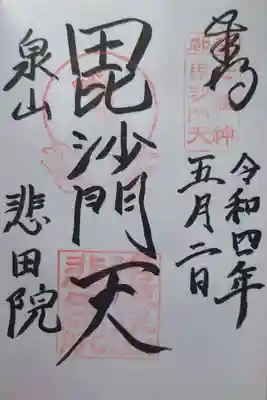 令和四年
五月二日
毘沙門天
泉山 悲田院